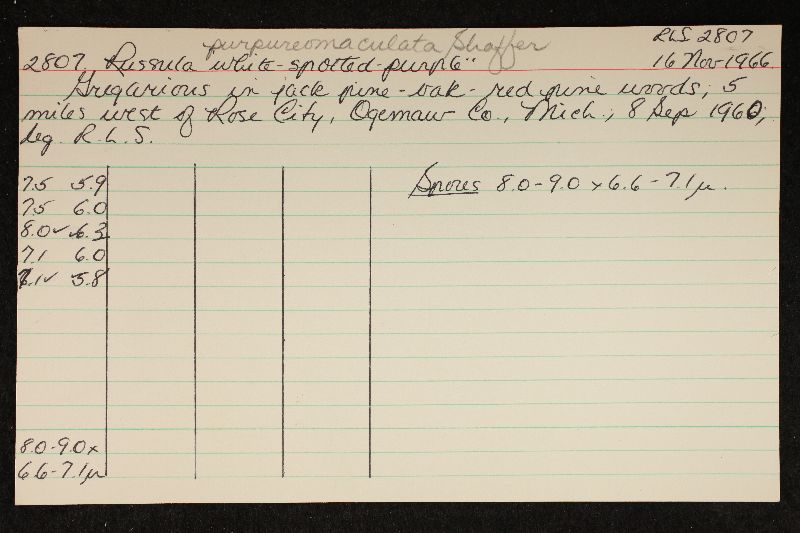 purpureomaculata Shaffer
RLS 2807
2807. Russula "white-spotted-purple"
16 Nov 1966
Gregarious in jack pine-oak-red pine woods, 5
miles west of Rose City, Ogemaw Co., Mich., 8 Sep 1960,
leg. R.L.S.
7.5 5.9
7.5 6.0
8.0✓ 6.3
7.1 6.0
7.1✓ 5.8
Spores 8.0-9.0 x 6.6-7.1µ.
8.0-9.0x
6.6-7.1µ